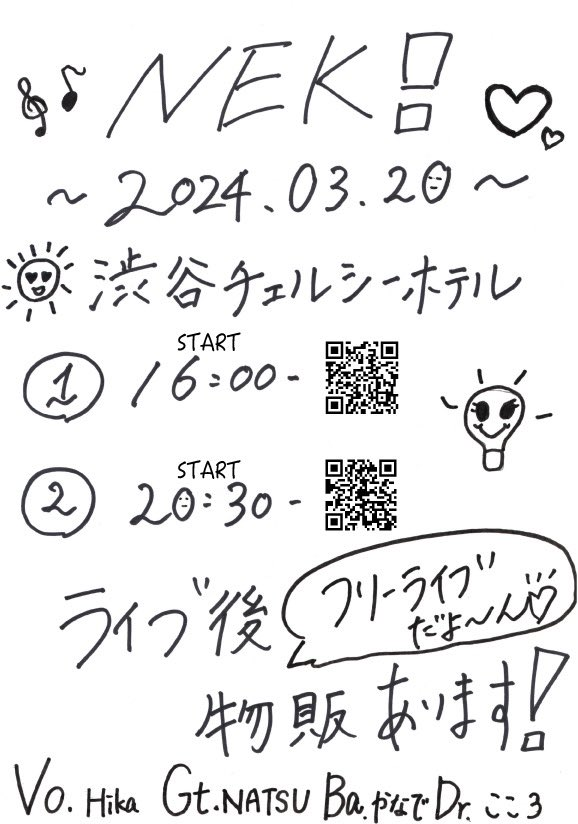 NEK!
~2024.03.20~
渋谷チェルシーホテル
START
① 16:00-
START
② 20:30-
ライブ後
フリーライブ
だよ~ん♡
物販あります!
Vo. Hika Gt.NATSU Ba.かなで Dr. ここ3